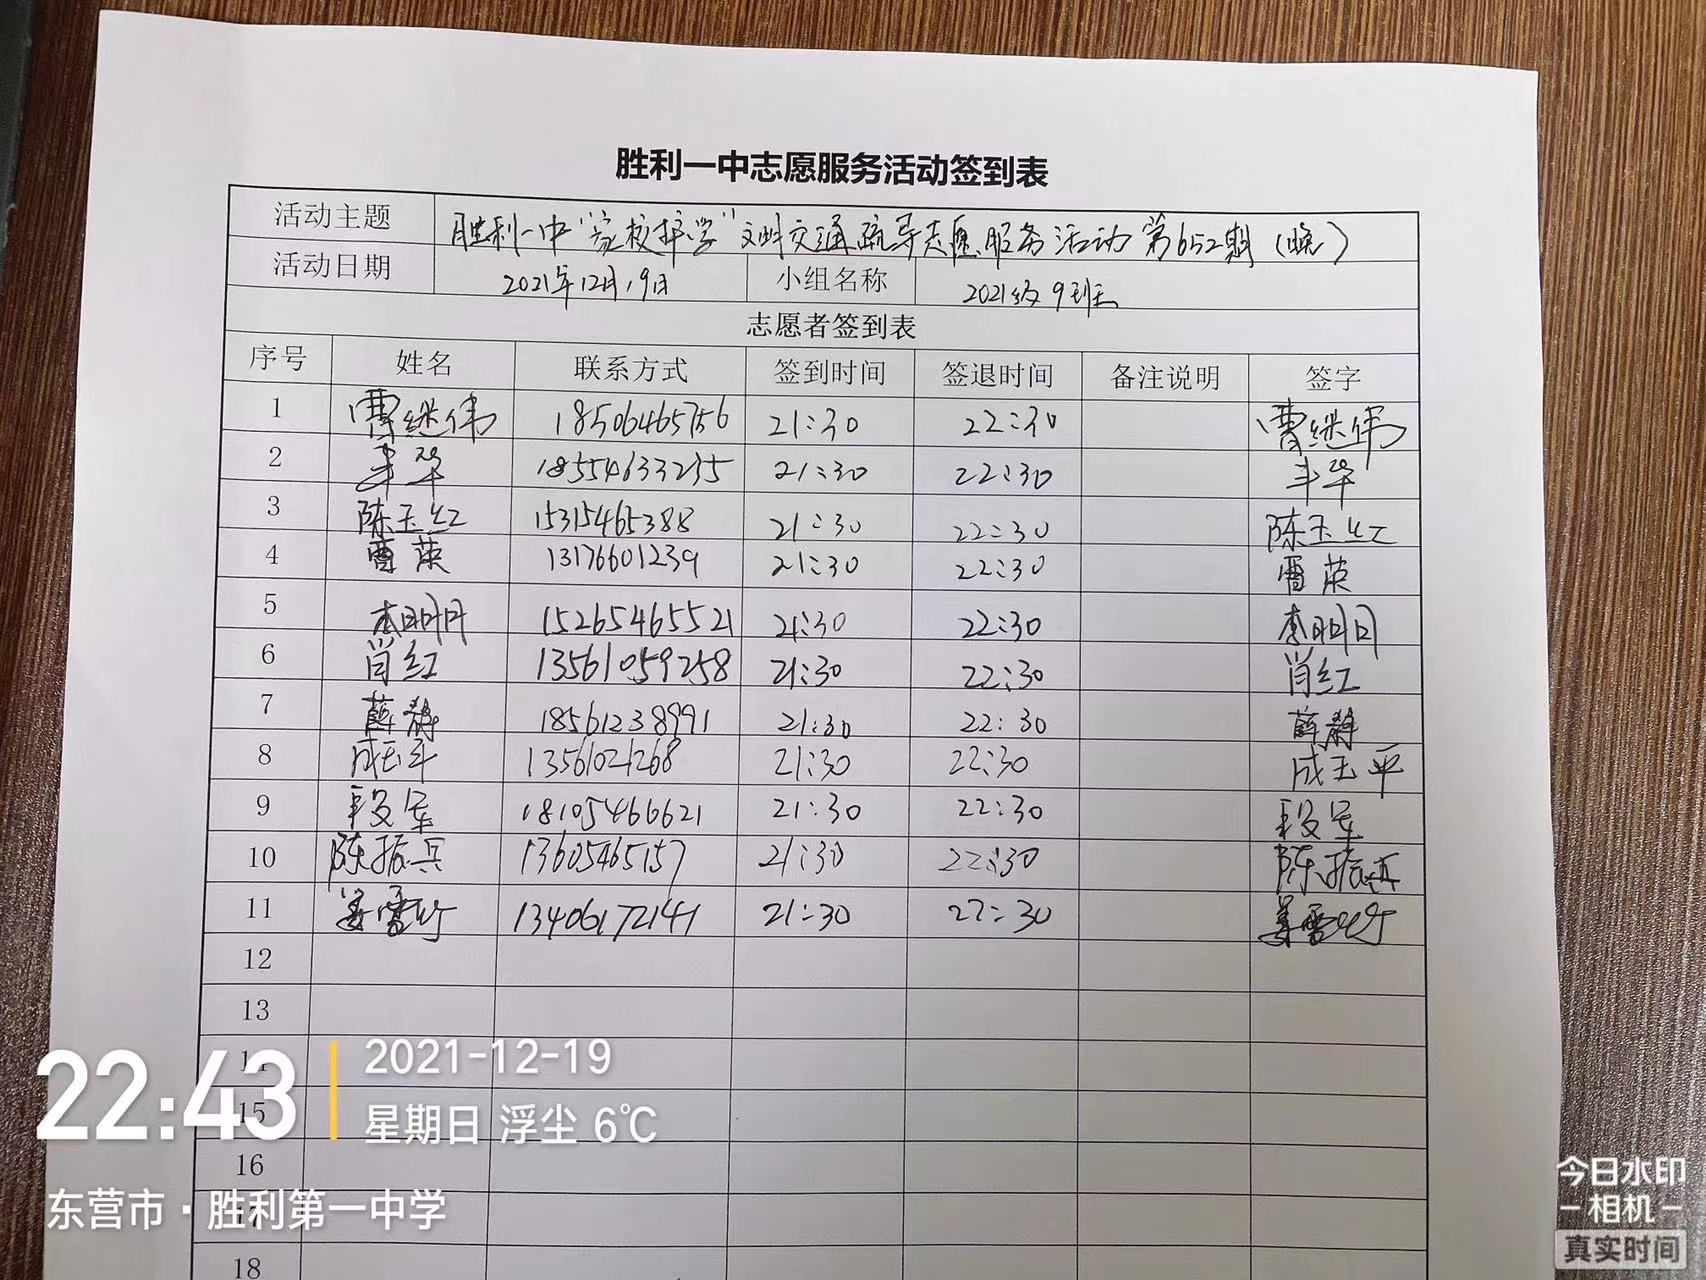 胜利一中志愿服务活动签到表
活动主题 胜利一中“家校护学”文明交通疏导志愿服务活动第652期（晚）
活动日期 2021年12月19日 小组名称 2021级9班
志愿者签到表
序号 姓名 联系方式 签到时间 签退时间 备注说明 签字
1 曹继伟 18506465756 21:30 22:30 曹继伟
2 丰华 18554633235 21:30 22:30 丰华
3 陈玉红 15315465388 21:30 22:30 陈玉红
4 曹英 13176601239 21:30 22:30
5 李明月 15265465521 21:30 22:30 李明月
6 肖红 13561059258 21:30 22:30 肖红
7 薛静 18561238991 21:30 22:30 薛静
8 成玉平 13561021268 21:30 22:30 成玉平
9 18105466621 21:30 22:30
10 陈振兵 13605465157 21:30 22:30 陈振兵
11 13406172141 21:30 22:30
12
13
15
16
17
18
22:43
2021-12-19
星期日 浮尘 6℃
东营市·胜利第一中学
今日水印
-相机-
真实时间